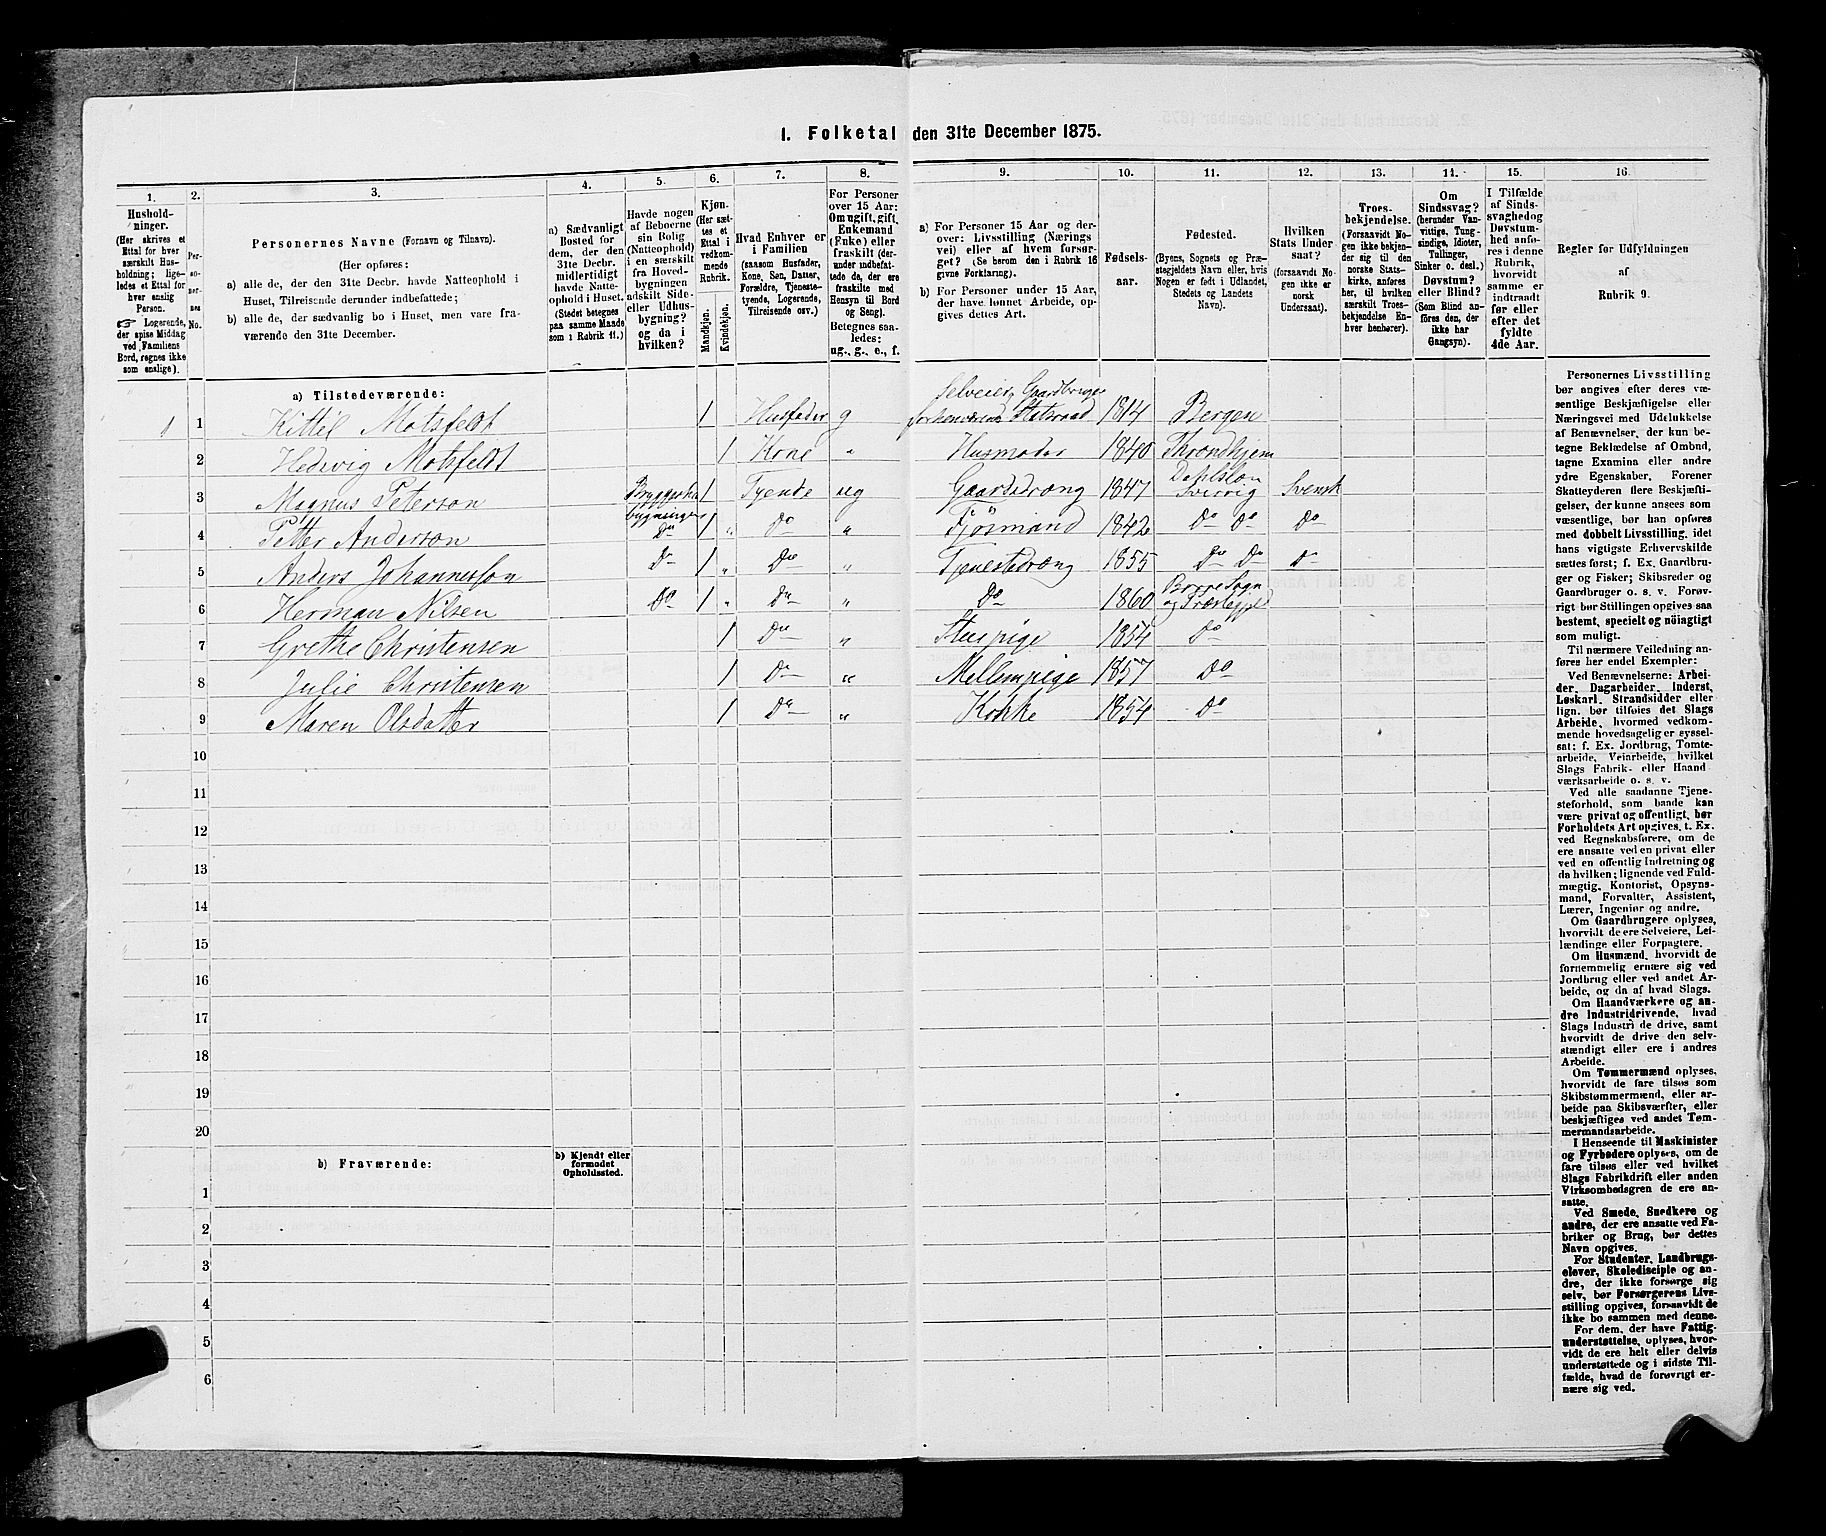 1. Folketal den 31te December 1875.
1. 2. 3. 4. 5. 6. 7. 8. 9. 10. 11. 12. 13. 14. 15. 16
Hushold-
ninger.
(Her skrives et
Ettal for hver
særskilt Hus-
holdning; lige-
ledes et Ettal for
hver enslig
Person.
☞ Logerende,
der spise Middag
ved Familiens
Bord, regnes ikke
som enslige).
Per-
so-
ner-
nes
No.
Personernes Navne (Fornavn og Tilnavn).
(Her opføres:
a) alle de, der den 31te Decbr. havde Natteophold i
Huset, Tilreisende derunder indbefattede;
b) alle de, der sædvanlig bo i Huset, men vare fra-
værende den 31te December.
a) Sædvanligt
Bosted for
dem, der den
31te Decbr.
midlertidigt
havde Natte-
ophold i Huset.
(Stedet betegnes
paa samme Maade
som i Rubrik 11.)
Havde nogen
af Beboerne
sin Bolig
(Natteophold)
i en særskilt
fra Hoved-
bygningen
adskilt Side-
eller Udhus-
bygning?
og da i
hvilken?
Kjøn.
(Her sæt-
tes et
Ettal i
vedkom-
mende
Rubrik.
Mandkjøn.
Kvindekjøn.
Hvad Enhver er
i Familien
(saasom Husfader,
Kone, Søn, Datter,
Forældre, Tjeneste-
tyende, Logerende,
Tilreisende osv.)
For Personer
over 15 Aar:
Om ugift, gift,
Enkemand
(Enke) eller
fraskilt (der-
under indbefat-
tede de, der ere
fraskilte med
Hensyn til Bord
og Seng).
Betegnes saa-
ledes:
ug., g., e., f.
a) For Personer 15 Aar og der-
over: Livsstilling (Nærings
vei) eller af hvem forsør-
get? (Se herom den i Rubrik 16
givne Forklaring).
b) For Personer under 15 Aar,
der have lønnet Arbeide, op-
gives dettes Art.
Fødsels-
aar.
Fødested.
(Byens, Sognets og Præ-
stegjeldets Navn eller, hvis
Nogen er født i Udlandet,
Stedets og Landets
Navn).
Hvilken
Stats Under
saat?
(forsaavidt No-
gen ikke er
norsk
Undersaat).
Troes-
bekjendelse.
(Forsaavidt No-
gen ikke bekjen-
der sig til den
norske Stats-
kirke, anføres
her, til hvilken
særskilt Troes-
bekjendelse En-
hver henhører).
Om
Sindssvag?
(herunder Van-
vittige, Tung-
sindige, Idioter,
Tullinger,
Sinker o. desl.)
Døvstum?
eller Blind?
(Som Blind an-
føres den, der
ikke har
Gangsyn).
I Tilfælde
af Sinds-
svaghed og
Døvstum-
hed anfø-
res i denne
Rubrik,
hvorvidt
samme er
indtraadt
før eller
efter det
fyldte
4de Aar.
Regler for Udfyldningen
af
Rubrik 9.
a) Tilstedeværende:
Selveier, Gaardbruger
1 1 Kittil Motsfeldt 1 Husfader g forhenværende Statsraad 1814 Bergen
2 Hedvig Motsfeldt 1 Kone " Husmoder 1840 Throndhjem
3 Magnus Peterson Bryggerhus 1 Tyende ug Gaardsdræng 1847 Dahlslon Sverrig Svensk
bygningen
4 Petter Anderson Do 1 " Do " Fjøsmand 1842 Do Do Do
5 Anders Johannesson Do 1 " Do " Tjenestedræng 1855 Do Do Do
6 Herman Nilsen Do 1 " Do " Do 1860 Borre Sogn og Præstegjeld
7 Grethe Christensen 1 Do " Stuepige 1854 Do
8 Julie Christensen 1 Do " Mellempige 1857 Do
9 Maren Olsdatter 1 Do " Kokke 1854 Do
10
11
12
13
14
15
16
17
18
19
20
b) Fraværende:
b) Kjendt eller
formodet
Opholdssted.
1
2
3
4
5
6
Personernes Livsstilling
bør angives efter deres væ-
sentlige Beskjæftigelse eller
Næringsvei med Udelukkelse
af Benævnelser, der kun be-
tegne Beklædelse af Ombud,
tagne Examina eller andre
ydre Egenskaber. Forener
Skatteyderen flere Beskjæfti-
gelser, der kunne ansees som
væsentlige, bør han opføres
med dobbelt Livsstilling, idet
hans vigtigste Erhvervskilde
sættes først; f. Ex. Gaardbru-
ger og Fisker; Skibsreder og
Gaardbruger o. s. v. Forøv-
rigt bør Stillingen opgives saa
bestemt, specielt og nöiagtigt
som muligt.
Til nærmere Veiledning an-
føres her endel Exempler:
Ved Benævnelserne: Arbei-
der, Dagarbeider, Inderst,
Løskarl, Strandsidder eller
lign. bør tilføies det Slags
Arbeide, hvormed vedkom-
mende hovedsagelig er syssel-
sat; f. Ex. Jordbrug, Tomte-
arbeide, Veiarbeide, hvilket
Slags Fabrik- eller Haand
værksarbeide o. s. v.
Ved alle saadanne Tjene-
steforhold, som baade kan
være privat og offentligt, bør
Forholdets Art opgives, t. Ex.
ved Regnskabsførere, om de
ere ansatte ved en privat eller
ved en offentlig Indretning og
da hvilken; lignende ved Fuld-
mægtig, Kontorist, Opsyns-
mand, Forvalter, Assistent,
Lærer, Ingeniør og andre.
Om Gaardbrugere oplyses,
hvorvidt de ere Selveiere, Lei-
lændinge eller Forpagtere.
Om Husmænd, hvorvidt de
fornemmelig ernære sig ved
Jordbrug eller ved andet Ar-
beide, og da af hvad Slags.
Om Haandværkere og an-
dre Industridrivende, hvad
Slags Industri de drive, samt
hvorvidt de drive den selv-
stændigt eller ere i andres
Arbeide.
Om Tømmermænd oplyses,
hvorvidt de fare tilsøs som
Skibstømmermænd, eller ar-
beide paa Skibsværfter, eller
beskjæftiges ved andet Tøm-
mermandsarbeide.
I Henseende til Maskinister
og Fyrbødere oplyses, om de
fare tilsøs eller ved hvilket
Slags Fabrikdrift eller anden
Virksomhedsgren de ere an-
satte.
Ved Smede, Snedkere og
andre, der ere ansatte ved Fa-
briker og Brug, bør dettes
Navn opgives.
For Studenter, Landbrugs-
elever, Skoledisciple og an-
dre, der ikke forsørge sig
selv, bør Forsørgerens Livs-
stilling opgives, forsaavidt de
ikke bo sammen med denne.
For dem, der have Fattig-
understøttelse, oplyses, hvor-
vidt de ere helt eller delvis
understøttede og i sidste Til-
fælde, hvad de forøvrigt er-
nære sig ved.